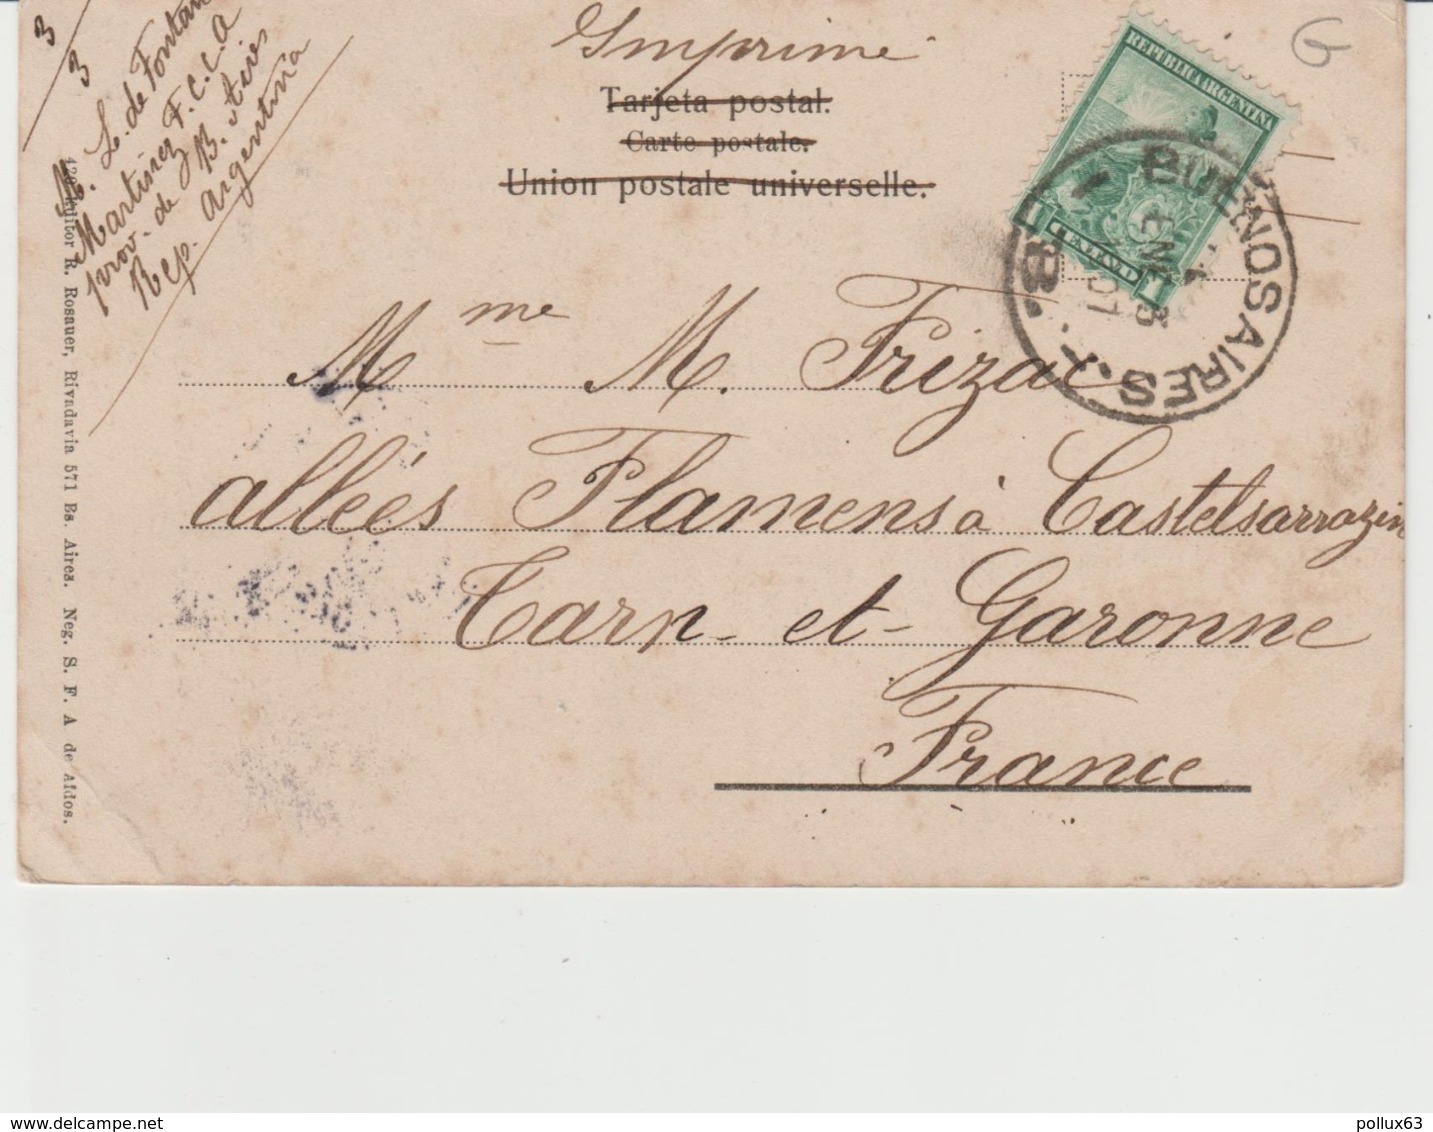 3
3
L. de Fontan
Martinez F.C.C.A
prov. de B. Aires
Rep. Argentina
Imprimé
Tarjeta postal.
Carte postale.
Union postale universelle.
G
REPUBLICA ARGENTINA
1 CENTAVO 1
BUENOS AIRES.
ENE 3
B.
Mme M. Frizac
allées Flamens à Castelsarrazin
Tarn et Garonne
France
Editor R. Rosauer, Rivadavia 571 Bs. Aires. Neg. S. F. A de Afdos.
www.delcampe.net
pollux63